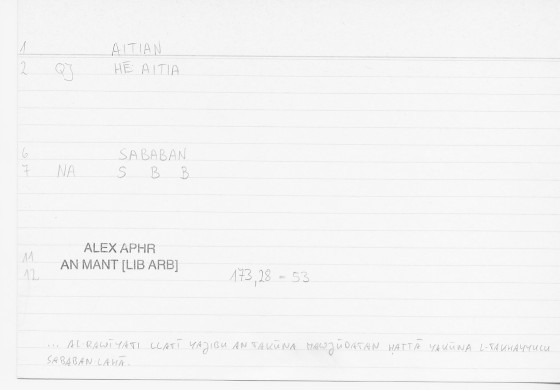 1 AITIAN
2 QJ HĒ AITIA
6 SABABAN
7 NA S B B
11 ALEX APHR
12 AN MANT [LIB ARB] 173,28 = 53
... AL-RAWĪYATI LLATĪ YAJIBU AN TAKŪNA MAWJŪDATAN ḤATTĀ YAKŪNA L-TAKHAYYULU
SABABAN LAHĀ.